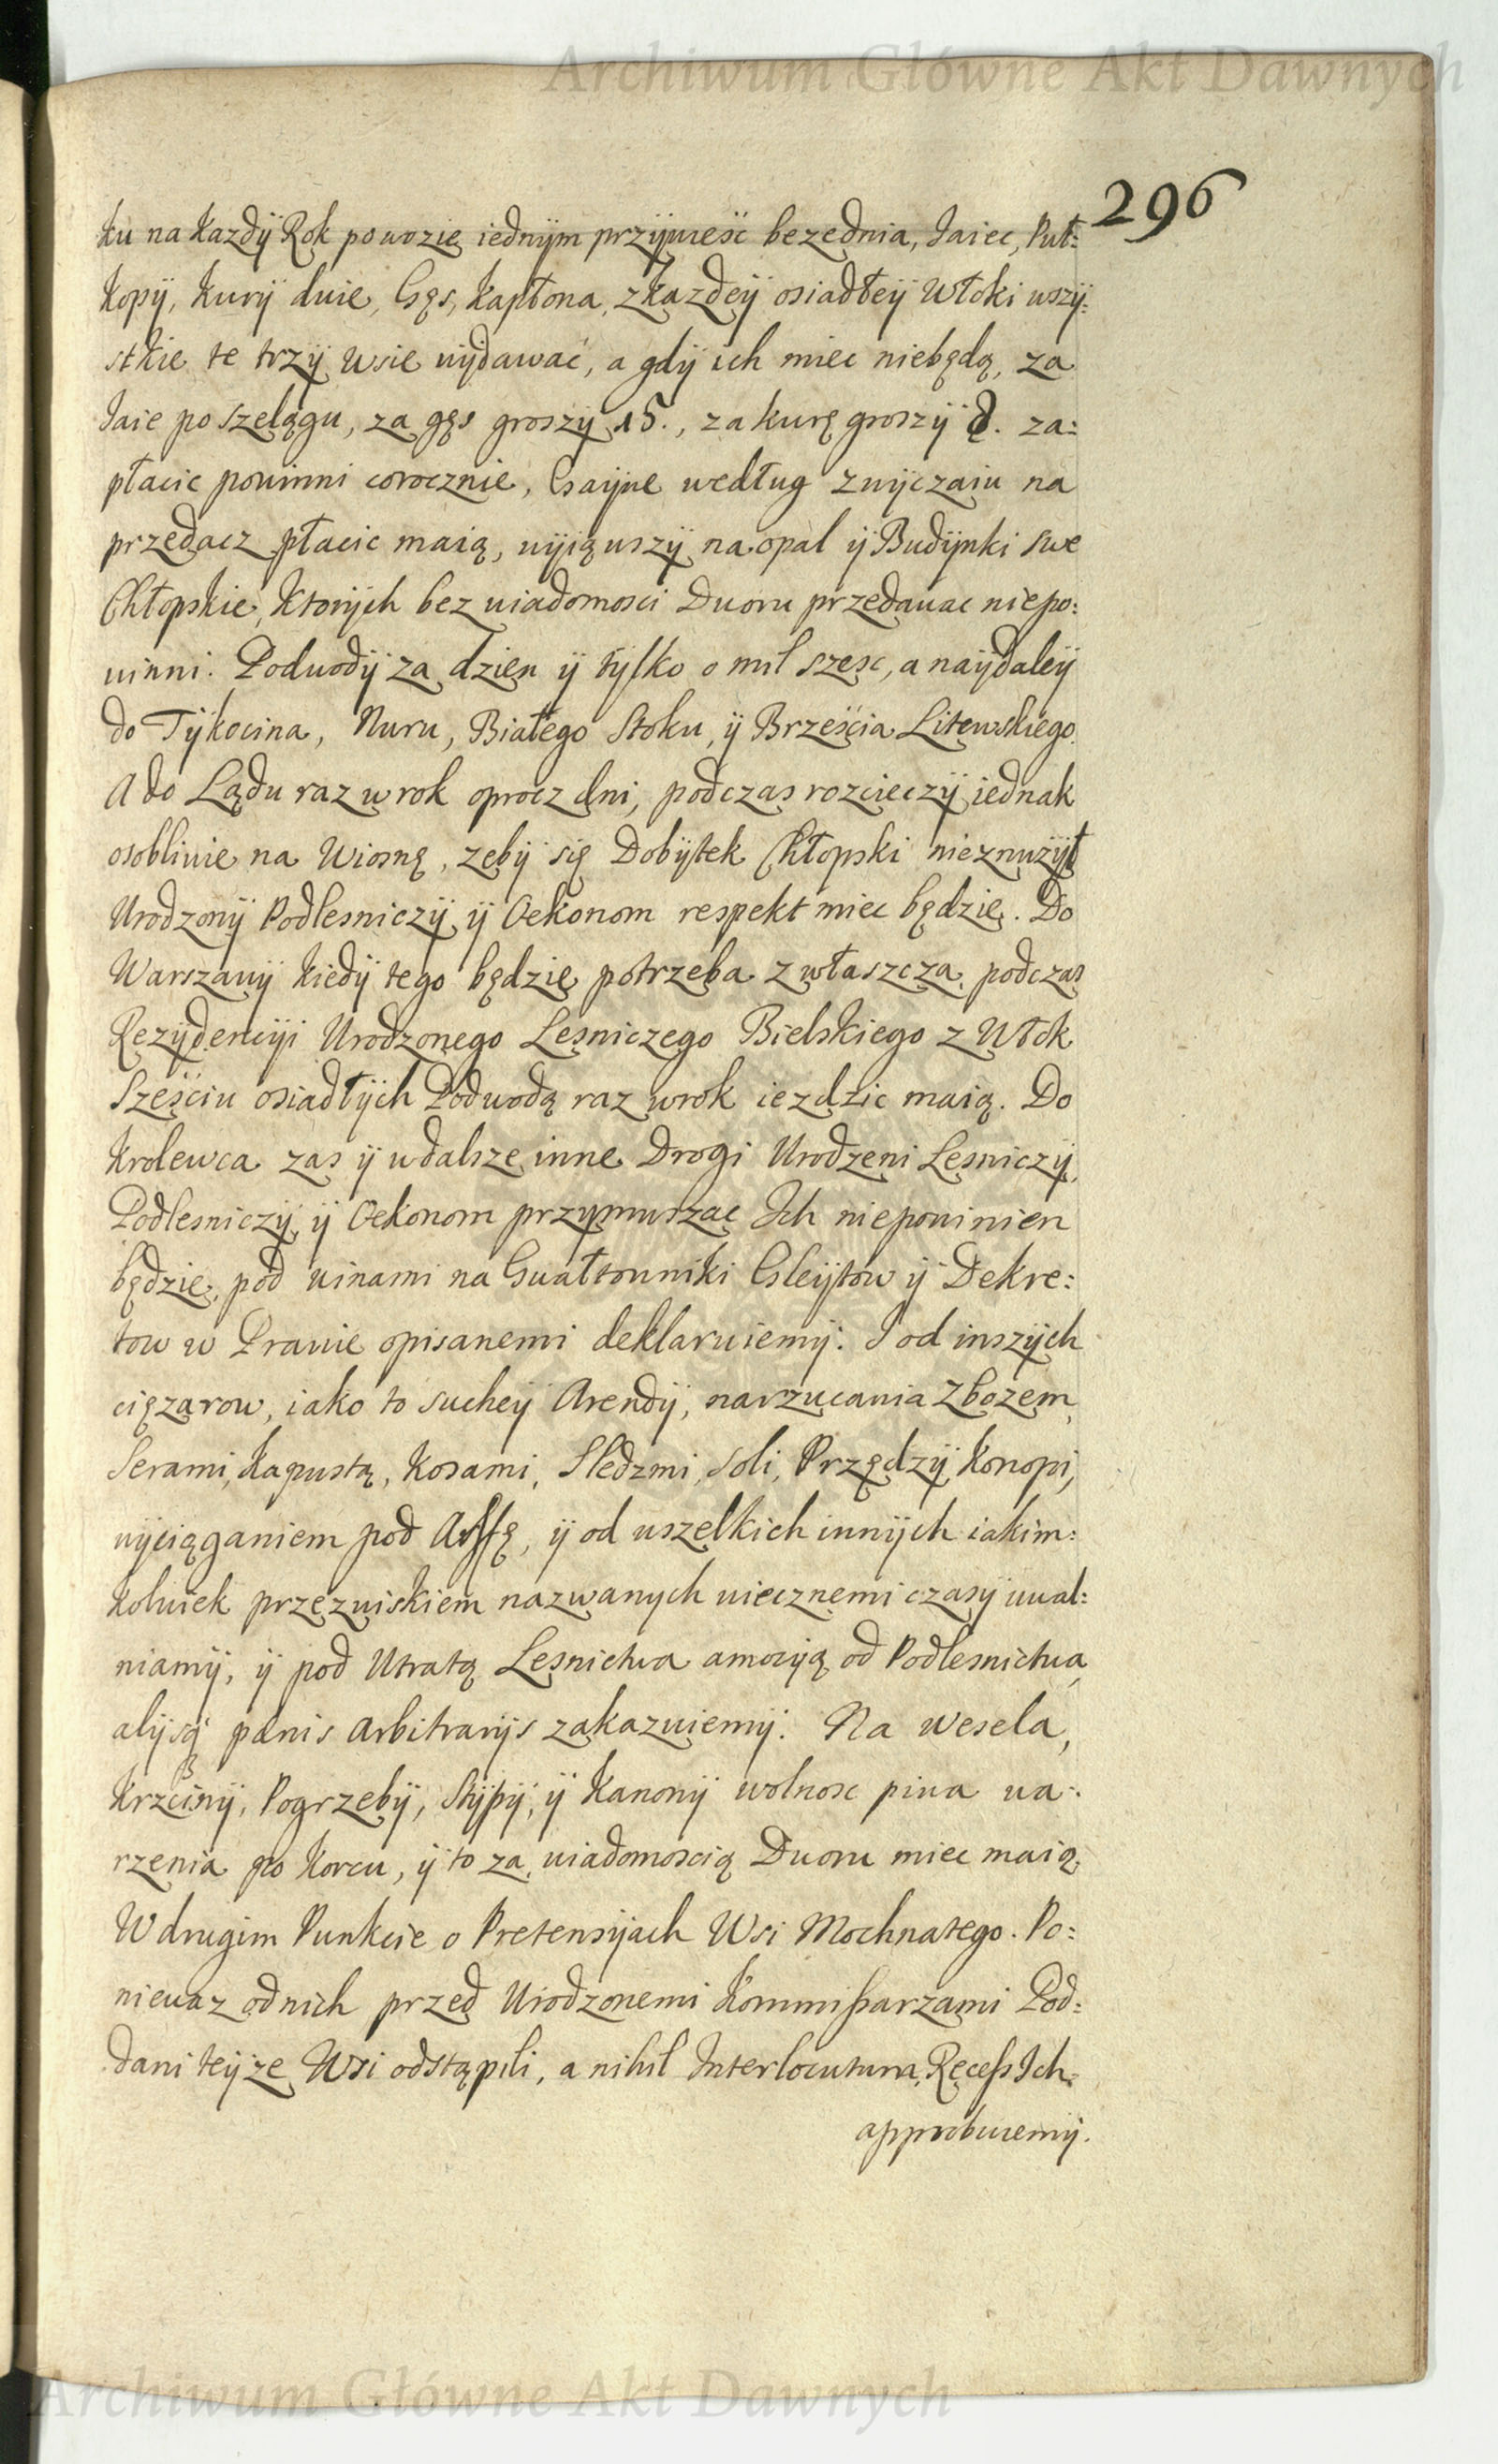 Archiwum Główne Akt Dawnych
296
ku na kazdÿ Rok powozie iednÿm przÿwieść bezednia, Jaiec, Puł:
kopÿ, kurÿ dwie, Gęs, kapłona, zkazdeÿ osiadłeÿ Włoki wszÿ:
stkie te trzÿ wsie wÿdawać, a gdÿ ich miec niebędą, za
Jaie po szelągu, za gęs groszÿ 15., za kurę groszÿ 8. za:
płacic powinni corocznie, Gaÿne według zwÿczaiu na
przedacz płacic maią, wÿiąwszÿ na opal ÿ Budÿnki swe
Chłopskie, ktorÿch bez wiadomosci Dworu przedawac niepo:
winni. Podwodÿ za dzien ÿ tÿlko o mil szesc, a naÿdaleÿ
do Tÿkocina, Nuru, Białego Stoku, ÿ Brześcia Litewskiego.
A do Lądu raz w rok oprocz dni, podczas rozcieczÿ iednak
osobliwie na Wiosnę, zebÿ się Dobÿtek Chłopski nieznużÿł
Urodzonÿ Podlesniczÿ ÿ Oekonom respekt miec będzie. Do
Warszawÿ kiedÿ tego będzie potrzeba zwłaszcza podczas
Rezÿdencÿi Urodzonego Lesniczego Bielskiego z Włok
Sześciu osiadłÿch Podwodą raz wrok iezdzic maią. Do
Krolewca zas ÿ w dalsze inne Drogi Urodzeni Lesniczÿ,
Podlesniczÿ, ÿ Oekonom przymuszac Ich niepowinien
będzie, pod winami na Gwałtowniki Gleÿtow ÿ Dekre:
tow w Prawie opisanemi deklaruiemÿ. I od inszÿch
cięzarow, iako to sucheÿ Arendÿ, narzucania Zbozem,
Serami, Kapustą, Kosami, Sledzmi, Soli, Przędzÿ Konopi,
wÿciąganiem pod Assę, ÿ od wszelkich innÿch iakim:
kolwiek przezwiskiem nazwanych wiecznemi czasÿ uwal:
niamÿ, ÿ pod Utratą Lesnictwa amocÿą od Podlesnictwa
alÿsą pænis Arbitrarÿs zakazuiemÿ. Na wesela,
Krzcinÿ, Pogrzebÿ, Stÿpÿ, ÿ Kanonÿ wolnosc piwa wa:
rzenia po Korcu, ÿ to za wiadomoscią Dworu miec maią.
W drugim Punkcie o Pretensÿach Wsi Mochnatego. Po:
niewaz odnich przed Urodzonemi Kommißarzami Pod:
dani teÿze Wsi odstąpili, a nihil Interlocutum, Receß Ich
approbuiemÿ.
Archiwum Główne Akt Dawnych